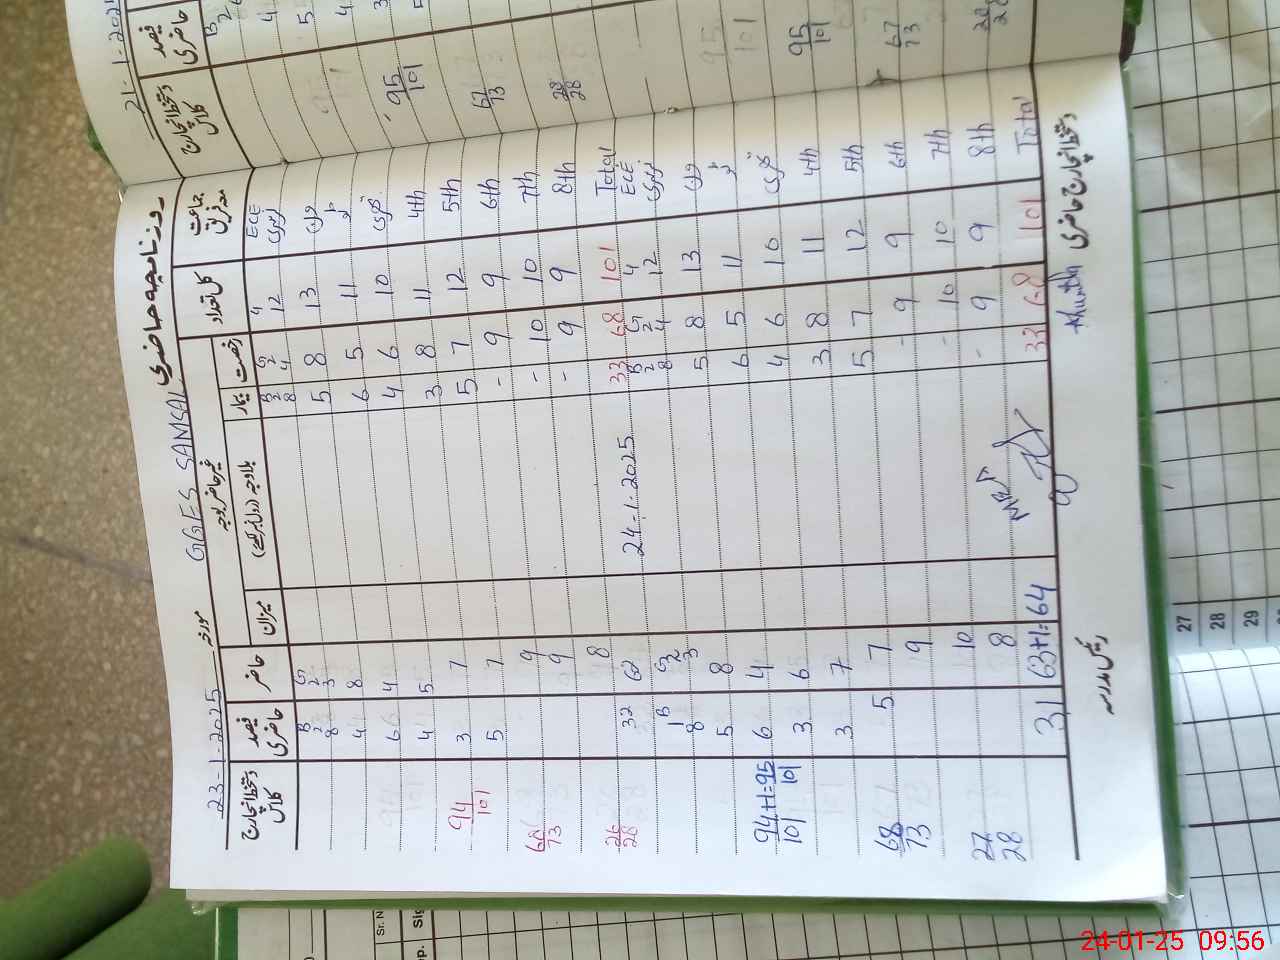 روزنامچہ حاضری
GGES SAMSAL
مورخہ 23-1-2025
جماعت معہ فریق کل تعداد رخصت بیمار غیر حاضر بوجہ بلاوجہ (رول نمبر لکھیے) میزان حاضر فیصد حاضری دستخط انچارج کلاس
B 2 G 2 B 2 G 2 4 ECE
8 3 8 4 12 نرسری
4 8 5 8 13 اول
6 4 6 5 11 دوم
4 5 4 6 10 سوئم
3 7 3 8 11 4th
94/101
5 7 5 7 12 5th
9 - 9 9 6th
68/73
9 - 10 10 7th
8 - 9 9 8th
26/28
32 62 33 68 101 Total
24-1-2025
B 1 G 2 B 2 G 2 4 ECE
8 3 8 4 12 نرسری
5 8 5 8 13 اول
6 4 6 5 11 دوم
94+1=95
101 101
3 6 4 6 10 سوئم
3 7 3 8 11 4th
5 7 5 7 12 5th
68/73
9 - 9 9 6th
10 - 10 10 7th
27/28
8 - 9 9 8th
31 63+1=64 33 68 101 Total
رئیس مدرسہ
دستخط انچارج حاضری
21-1-2025
فیصد حاضری
دستخط انچارج کلاس
95/101
67/73
28/28
95/101
67/73
28/28
27
28
29
Sr. N
24-01-25 09:56